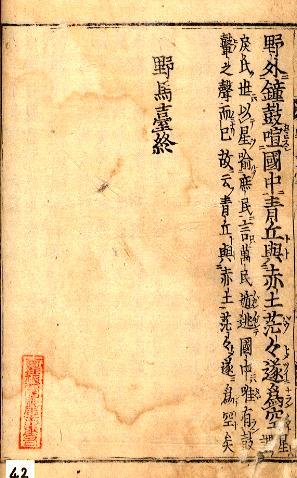 野外鐘鼓喧國中青丘與赤土茫々遂爲空 星
庶民也以星喻庶民言萬民逋逃國中唯有鼓
鼙之聲而已故云青丘與赤土茫々遂爲空矣
野馬臺終
42